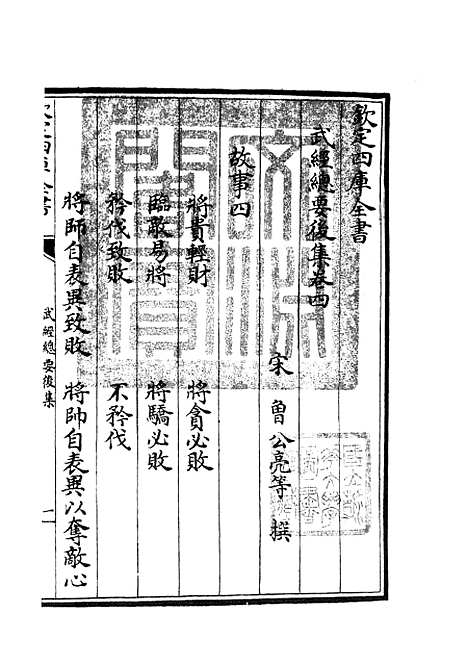 欽定四庫全書
武經總要後集卷四
宋 曾公亮等 撰
故事四
將貴輕財 將貪必敗
臨敵易將 將驕必敗
矜伐致敗 不矜伐
將帥自表異致敗 將帥自表異以奪敵心
武經總要後集
一